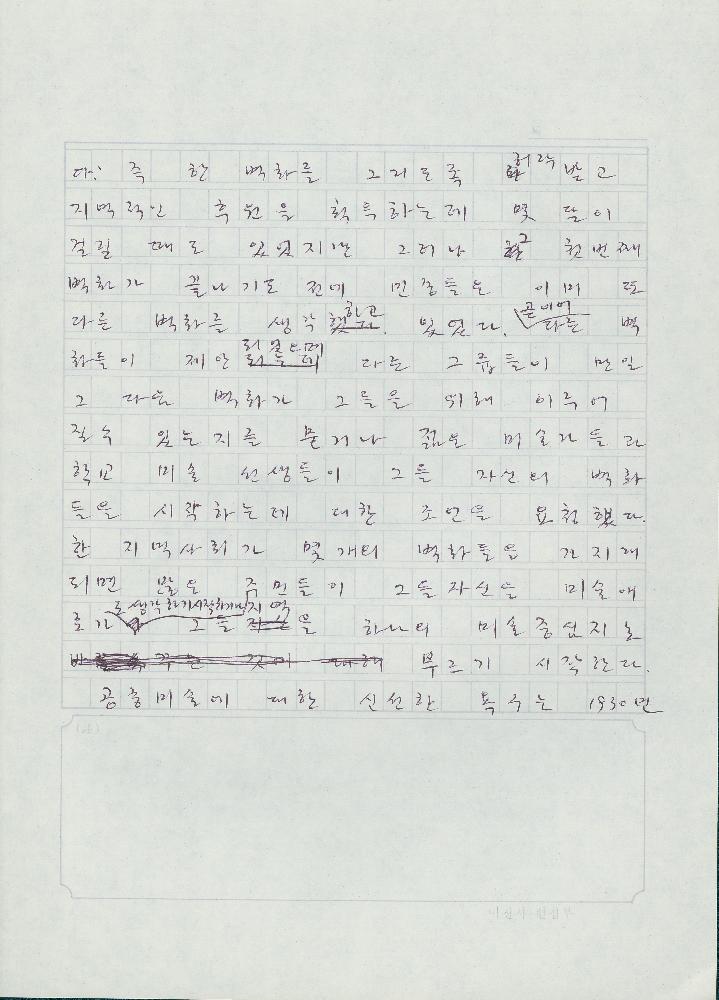 다: 즉 한 벽화를 그리도록 허락 받고
지역적인 후원을 획득하는데 몇 달이
걸릴 때도 있었지만 그러나 그 첫번째
벽화가 끝나기도 전에 민중들은 이미 또
다른 벽화를 생각하고 있었다. 곧이어 다른 벽
화들이 제안되었는데 다른 그룹들이 만일
그 다음 벽화가 그들을 위해 이루어
질 수 있는지를 묻거나 젊은 미술가들과
학교 미술 선생들이 그들 자신의 벽화
들을 시작하는데 대한 조언을 요청했다.
한 지역사회가 몇 개의 벽화들을 가지게
되면 많은 주민들이 그들자신을 미술애
호가로 생각하기시작하거나 그들 지역을 하나의 미술중심지로
부르기 시작한다.
공중미술에 대한 신선한 욕구는 1930년
(매)